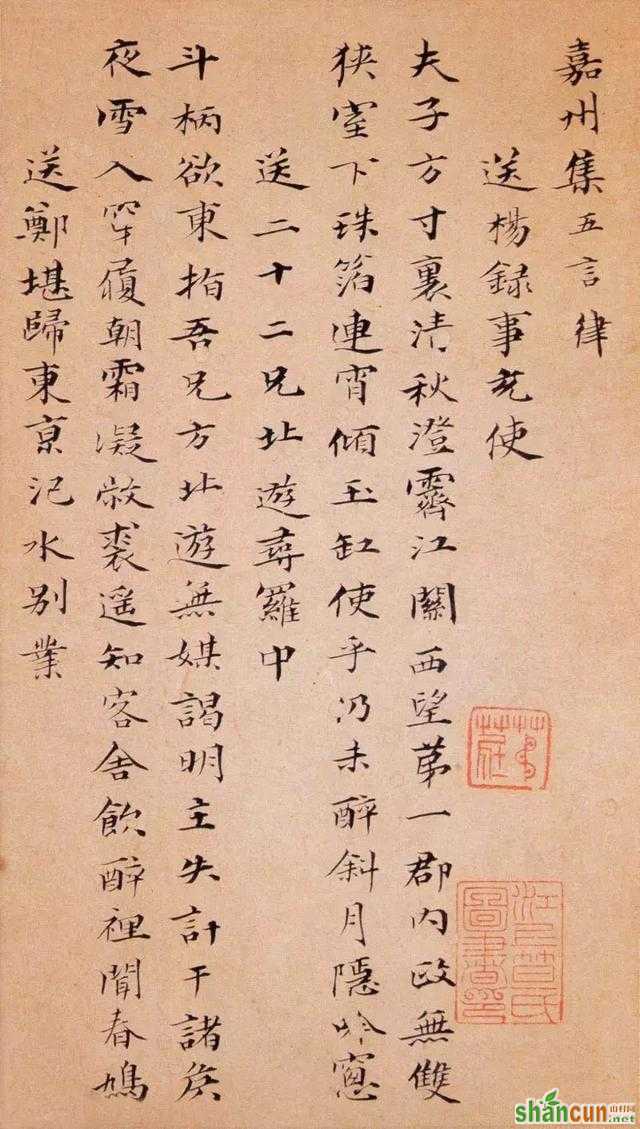 嘉州集五言律
送楊録事充使
夫子方寸裏清秋澄霽江關西望苐一郡内政無雙
狹室下珠箔連宵傾玉缸使乎仍未醉斜月隱吟窻
送二十二兄北遊尋羅中
斗柄欲東指吾兄方北遊無媒謁明主失計干諸侯
夜雪入穿履朝霜凝敝裘遥知客舍飲醉裡聞春鳩
送鄭堪歸東京汜水别業
江上笪氏圖書印
shancun
山村网
.net